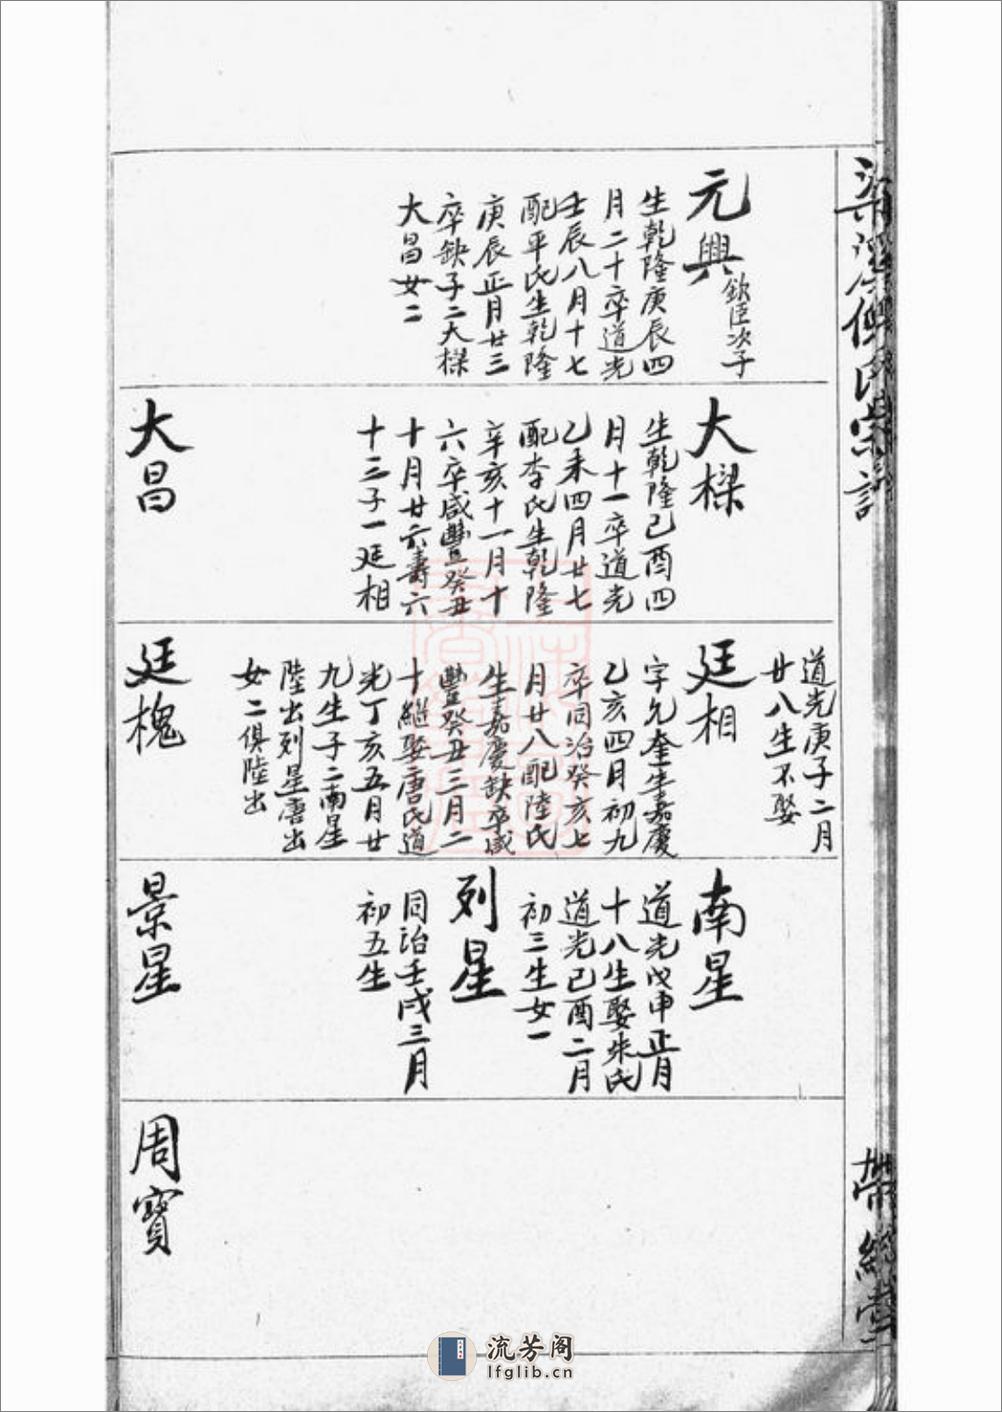 元興
欽臣次子
生乾隆庚辰四
月二十卒道光
壬辰八月十七
配平氏生乾隆
庚辰正月廿三
卒缺子二大樑
大昌女二
大樑
生乾隆己酉四
月十一卒道光
乙未四月廿七
配李氏生乾隆
辛亥十一月十
六卒咸豐癸丑
十月廿六壽六
十三子一廷相
大昌
道光庚子二月
廿八生不娶
廷相
字允奎生嘉慶
乙亥四月初九
卒同治癸亥七
月廿八配陸氏
生嘉慶缺卒咸
豐癸丑三月二
十繼娶唐氏道
光丁亥五月廿
九生子二南星
陸出列星唐出
女二俱陸出
廷槐
南星
道光戊申正月
十八生娶朱氏
道光己酉二月
初三生女一
列星
同治壬戌三月
初五生
景星
周寶
流芳阁
lfglib.cn